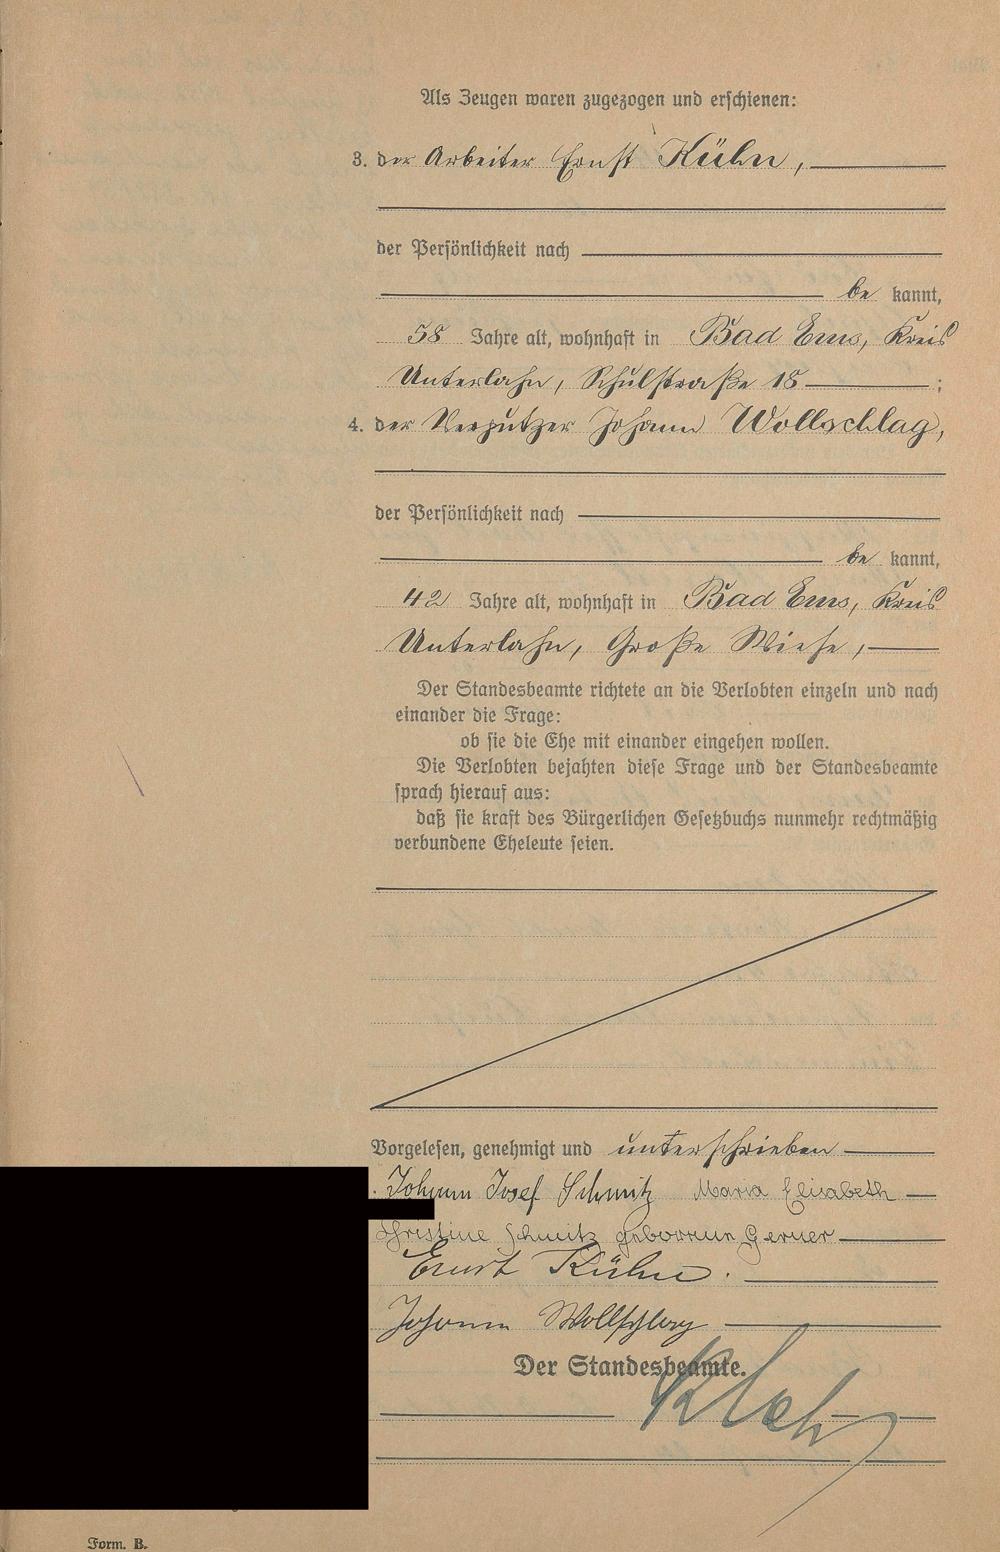 Als Zeugen waren zugezogen und erschienen:
3. der Arbeiter Ernst Kühn,
der Persönlichkeit nach
be kannt,
58 Jahre alt, wohnhaft in Bad Ems, Kreis
Unterlahn, Schulstraße 18 ;
4. der Verputzer Johann Wollschlag,
der Persönlichkeit nach
be kannt,
42 Jahre alt, wohnhaft in Bad Ems, Kreis
Unterlahn, Große Wiese,
Der Standesbeamte richtete an die Verlobten einzeln und nach
einander die Frage:
ob sie die Ehe mit einander eingehen wollen.
Die Verlobten bejahten diese Frage und der Standesbeamte
sprach hierauf aus:
daß sie kraft des Bürgerlichen Gesetzbuchs nunmehr rechtmäßig
verbundene Eheleute seien.
Vorgelesen, genehmigt und unterschrieben
Johann Josef Schmitz Maria Elisabeth
Christine Schmitz Gerner
Ernst Kühn.
Johann Wollschlag
Der Standesbeamte.
Form. B.